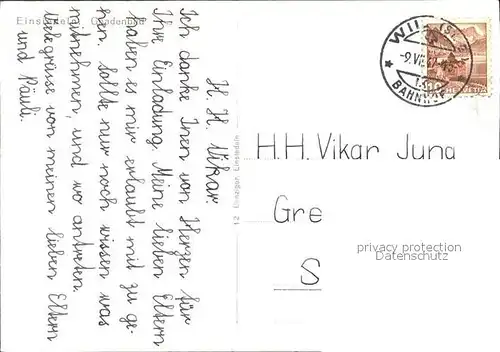 Einsiedeln Gnadenbild
H. H. Vikar.
Ich danke Inen von Herzen für
Ihre Einladung. Meine lieben Eltern
haben es mir erlaubt mit zu ge-
hen. Sollte nur noch wissen was
mitnehmen, und wo antreten.
Liebe grüsse von meinen lieben Eltern
und Päuli.
12 Einsiedeln
WIL (ST. G.)
BAHNHOF
HELVETIA
H.H. Vikar Juna
Gre
S
privacy protection
Datenschutz